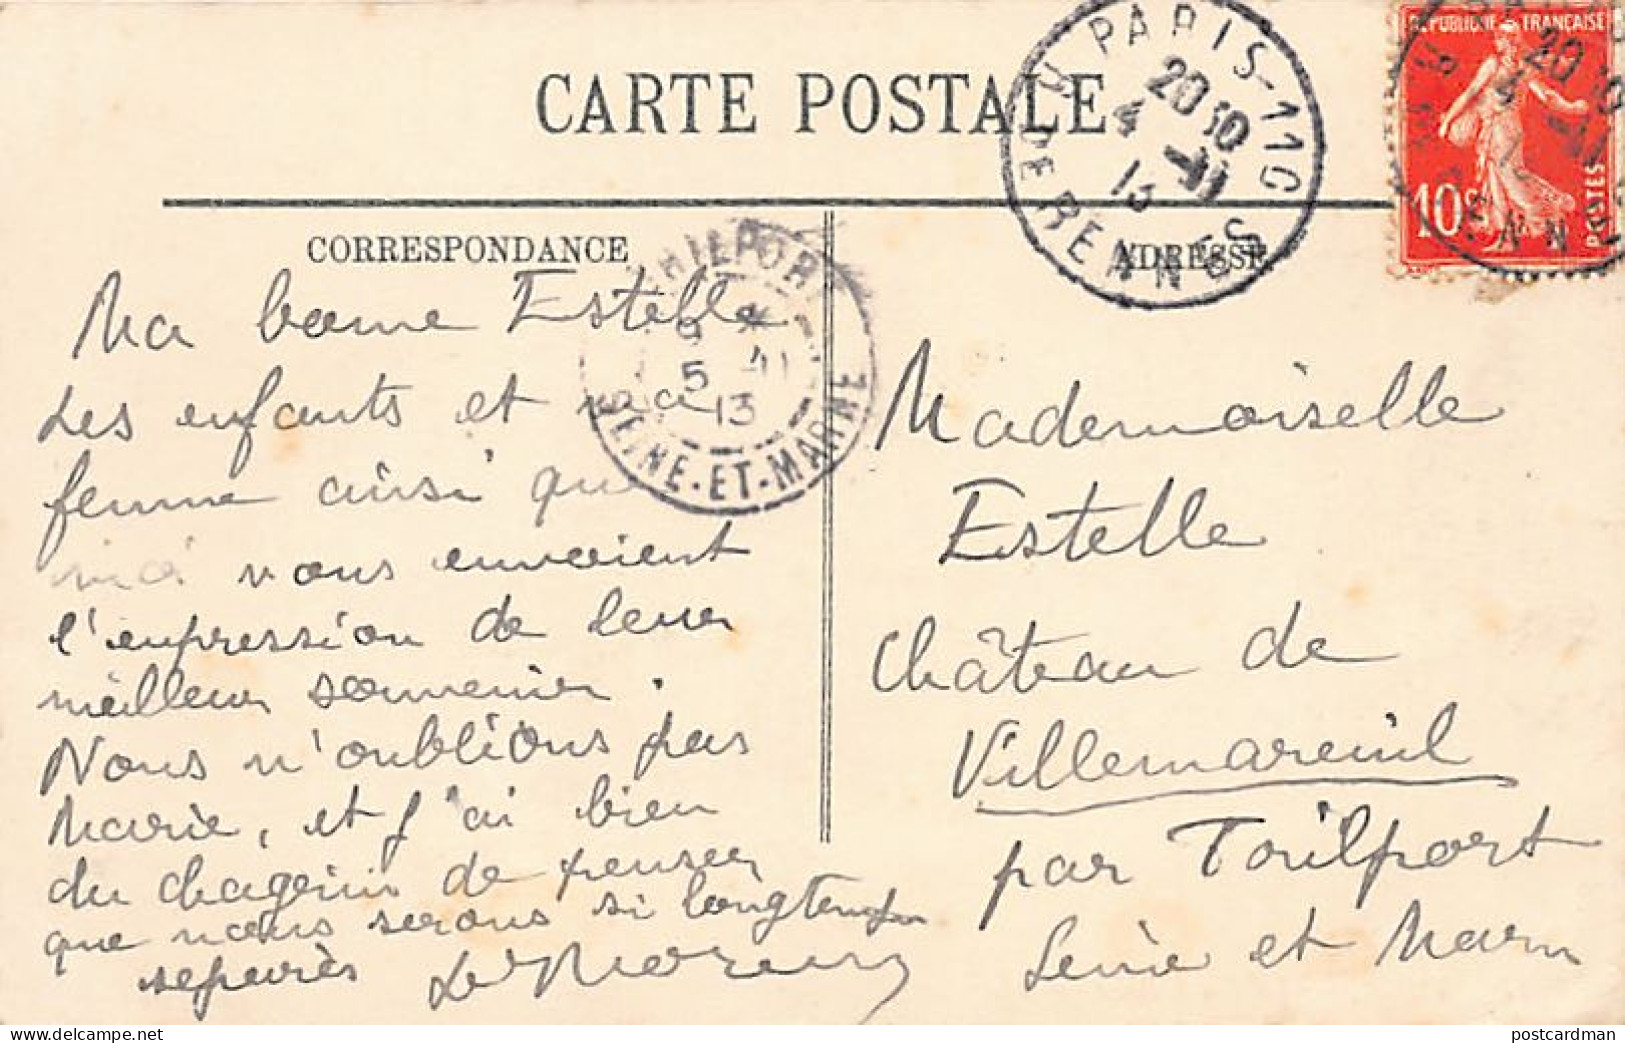 CARTE POSTALE
PARIS-110
R. DE RENNES
20 30
4 -11
13
RÉPUBLIQUE FRANÇAISE
10c
POSTES
CORRESPONDANCE
ADRESSE
TRILPORT
9 *
5 -11
13
SEINE-ET-MARNE
Ma bonne Estelle
Les enfants et ma
femme ainsi que
moi vous envoient
l'expression de leur
meilleur souvenir.
Nous n'oublions pas
Marie, et j'ai bien
du chagrin de penser
que nous serons si longtemps
séparés
Mademoiselle
Estelle
Château de
Villemareuil
par Trilport
Seine et Marne
Delcampe.net
postcardman